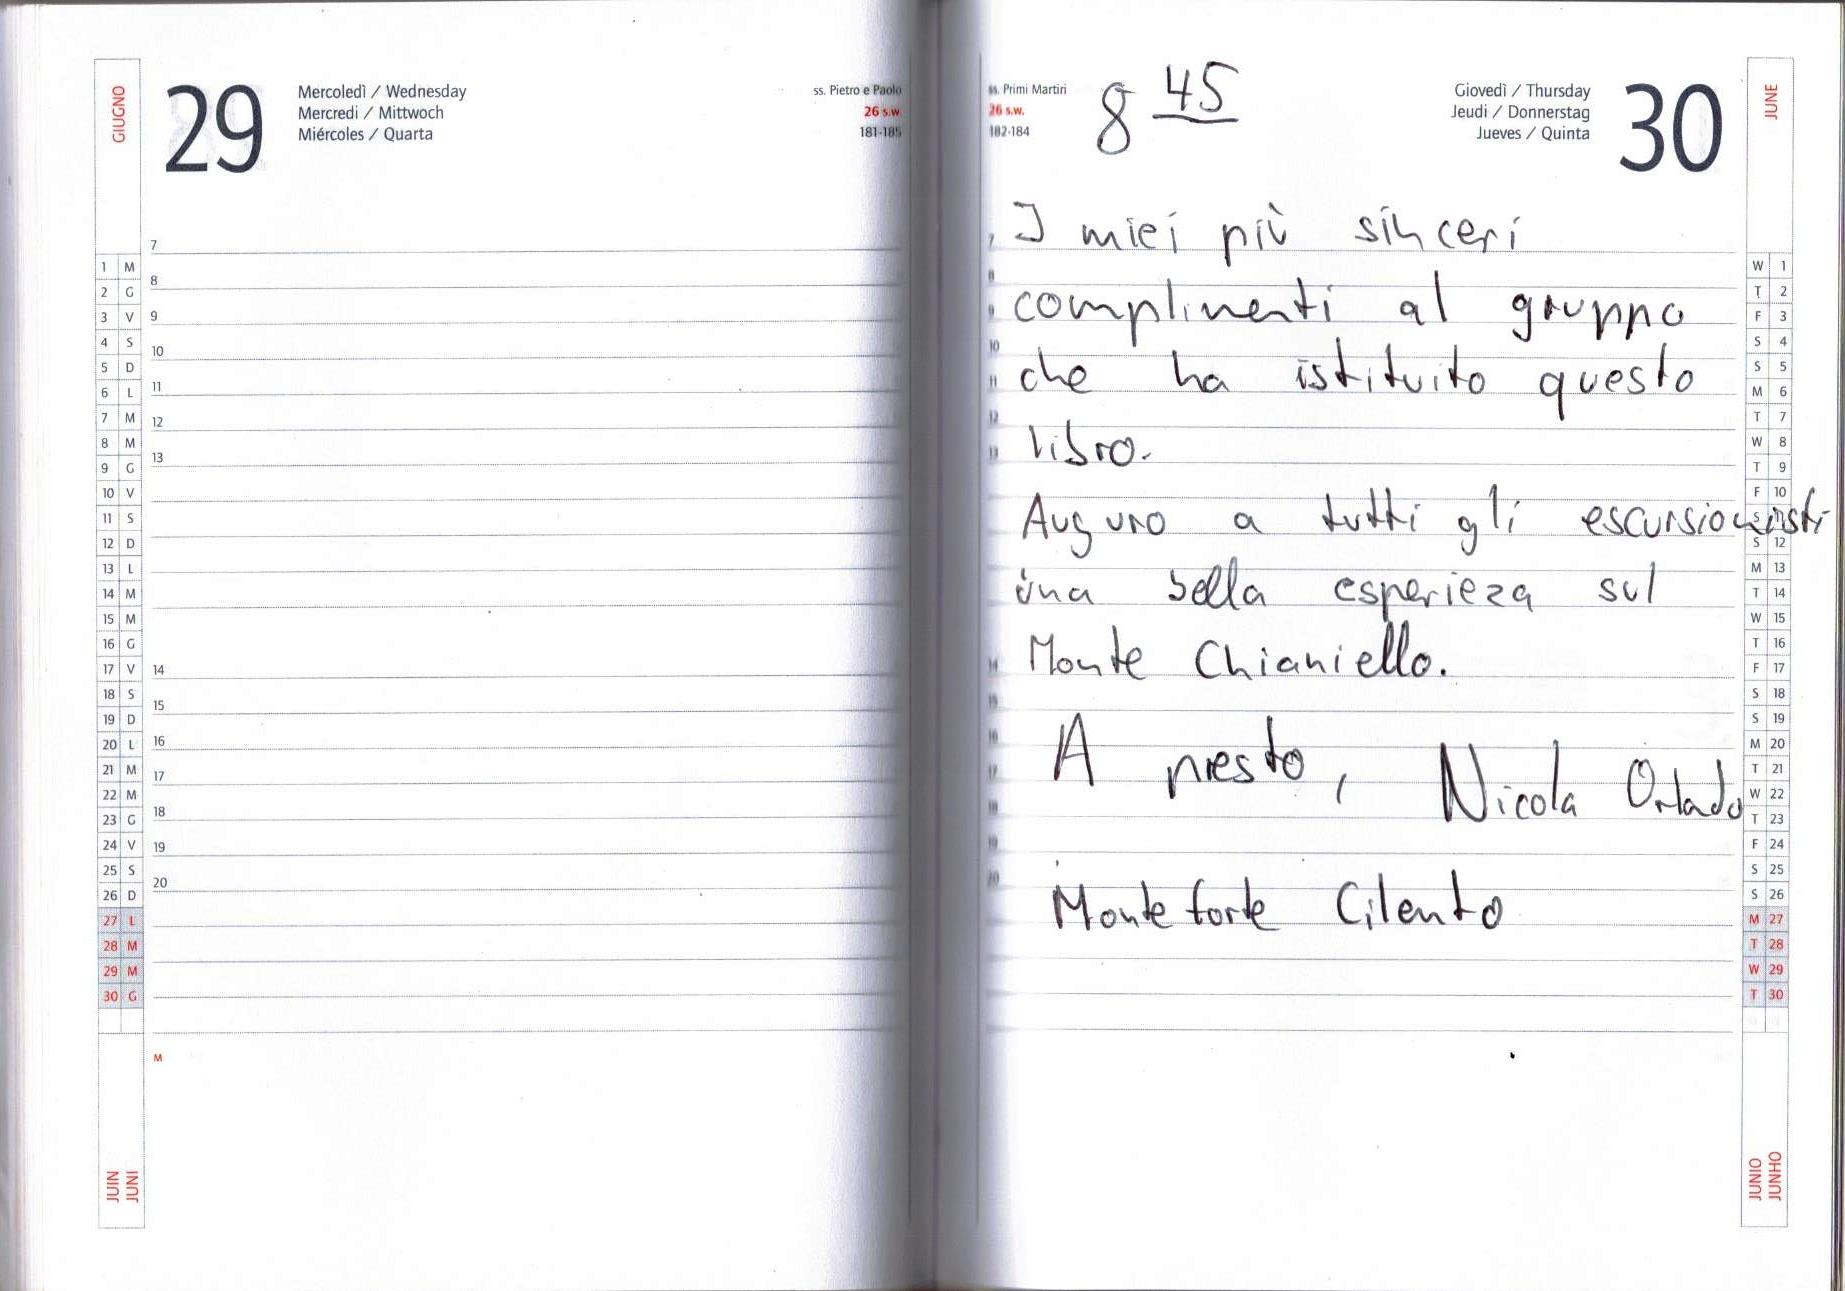 GIUGNO
29
Mercoledì / Wednesday
Mercredi / Mittwoch
Miércoles / Quarta
ss. Pietro e Paolo
26 s.w.
181-185
7
8
9
10
11
12
13
14
15
16
17
18
19
20
M
1 M
2 G
3 V
4 S
5 D
6 L
7 M
8 M
9 G
10 V
11 S
12 D
13 L
14 M
15 M
16 G
17 V
18 S
19 D
20 L
21 M
22 M
23 G
24 V
25 S
26 D
27 L
28 M
29 M
30 G
JUIN
JUNI
ss. Primi Martiri
26 s.w.
182-184
8 45
Giovedì / Thursday
Jeudi / Donnerstag
Jueves / Quinta
30
JUNE
I miei più sinceri
complimenti al gruppo
che ha istituito questo
libro.
Auguro a tutti gli escursionisti
una bella esperieza sul
Monte Chianiello.
A presto, Nicola Orlado
Monteforte Cilento
7
8
9
10
11
12
13
14
15
16
17
18
19
20
W 1
T 2
F 3
S 4
S 5
M 6
T 7
W 8
T 9
F 10
S 11
S 12
M 13
T 14
W 15
T 16
F 17
S 18
S 19
M 20
T 21
W 22
T 23
F 24
S 25
S 26
M 27
T 28
W 29
T 30
JUNIO
JUNHO